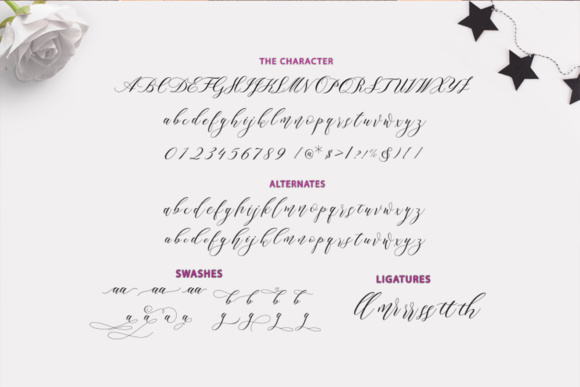 THE CHARACTER
A B C D E F G H I J K L M N O P Q R S T U V W X Y Z
a b c d e f g h i j k l m n o p q r s t u v w x y z
0 1 2 3 4 5 6 7 8 9 ! @ * $ > ] ? ! % & ) { }
ALTERNATES
a b c d e f g h i j k l m n o p q r s t u v w x y z
a b c d e f g h i j k l m n o p q r s t u v w x y z
SWASHES
aa aa aa b b b b
a a a a y y y y
LIGATURES
ll mr rr ss tt th